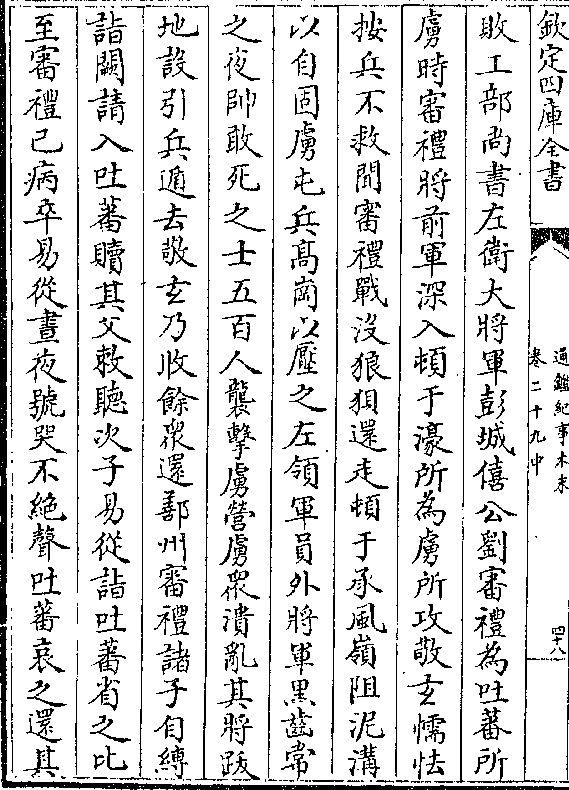 欽定四庫全書
通鑑紀事本末
卷二十九中
四十八
敗工部尚書左衛大將軍彭城僖公劉審禮為吐蕃所
虜時審禮將前軍深入頓于濠所為虜所攻敬玄懦怯
按兵不救聞審禮戰沒狼狽還走頓于承風嶺阻泥溝
以自固虜屯兵髙崗以壓之左領軍員外將軍黒齒常
之夜帥敢死之士五百人襲擊虜營虜衆潰亂其將跋
地設引兵遁去敬玄乃收餘衆還鄯州審禮諸子自縛
詣闕請入吐蕃贖其父敕聽次子易從詣吐蕃省之比
至審禮已病卒易從晝夜號哭不絶聲吐蕃哀之還其